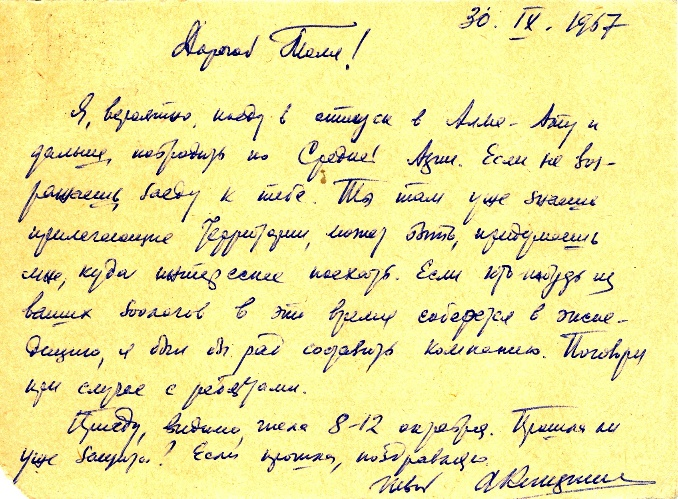 30. IX. 1967
Дорогой Толя!
Я, вероятно, поеду в отпуск в Алма-Ату и
дальше, побродить по Средней Азии. Если не воз-
ражаешь, заеду к тебе. Ты там уже знаешь
прилегающие территории, может быть, придумаешь
мне, куда интереснее поехать. Если кто-нибудь из
ваших зоологов в это время соберется в экспе-
дицию, я был бы рад составить компанию. Поговори
при случае с ребятами.
Приеду, видимо, числа 8-12 октября. Прошла ли
уже защита? Если прошла, поздравляю.
Твой